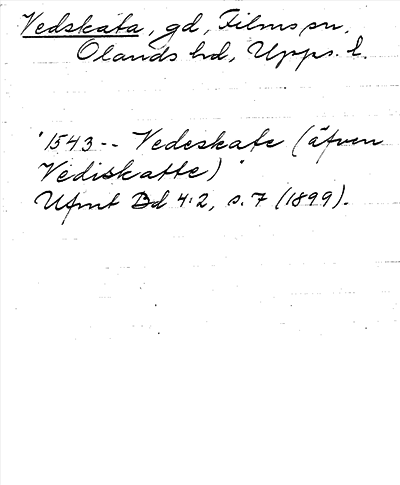 Vedskata, gd, Films sn,
Olands hd, Upps. l.
"1543-- Vedeskate (äfven
Vediskatte)"
Ufmt Bd 4:2, s. 7 (1899).